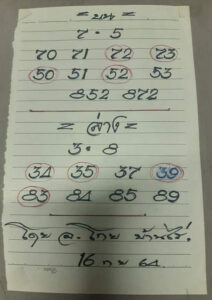 = บน =
7 · 5
70 71 72 73
50 51 52 53
852 872
= ล่าง =
3 · 8
34 35 37 39
83 84 85 89
โดย อ. โกย บ้านไร่.
16 กย 64